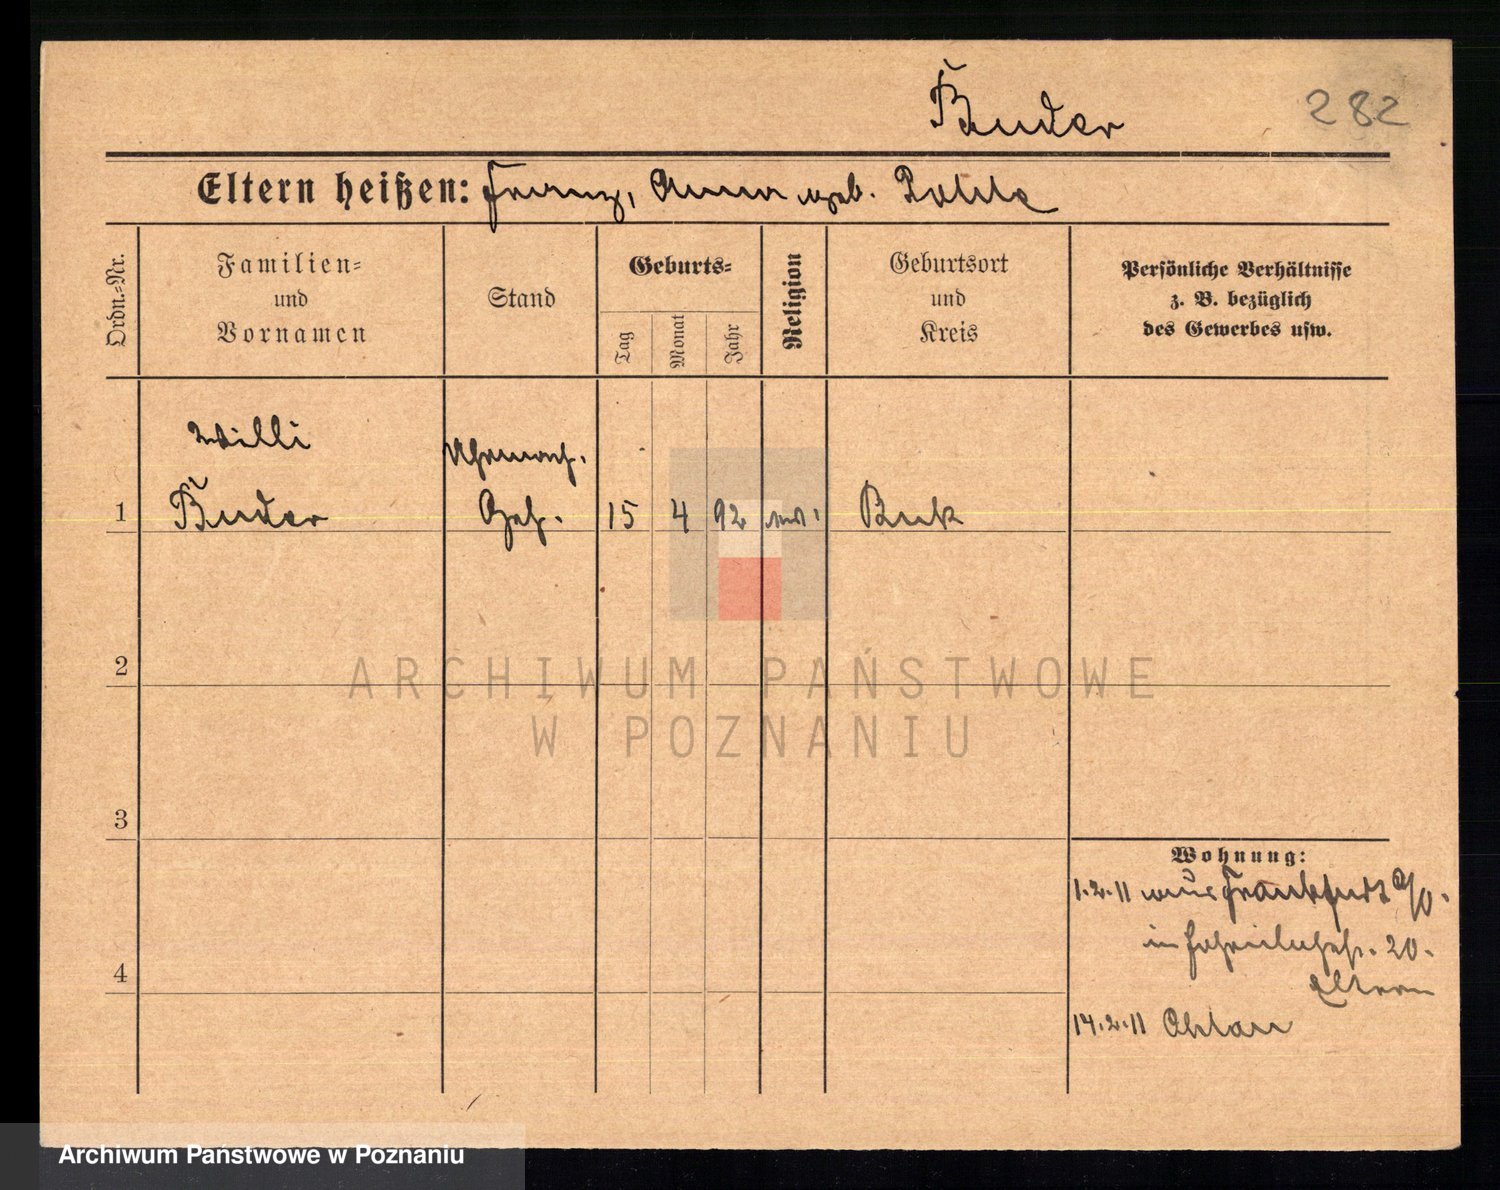 Buder
282
Eltern heißen: Franz, Anna geb. Pohle
Ordn.-Nr.
Familien-
und
Vornamen
Stand
Geburts-
Tag
Monat
Jahr
Religion
Geburtsort
und
Kreis
Persönliche Verhältnisse
z. B. bezüglich
des Gewerbes usw.
Willi
Uhrmach.
1 Buder Geh. 15 4 92 Buk
2
3
4
Wohnung:
1.2.11 aus Frankfurt a/O.
in 20.
Eltern
14.2.11 Ohlau
ARCHIWUM PAŃSTWOWE
W POZNANIU
Archiwum Państwowe w Poznaniu